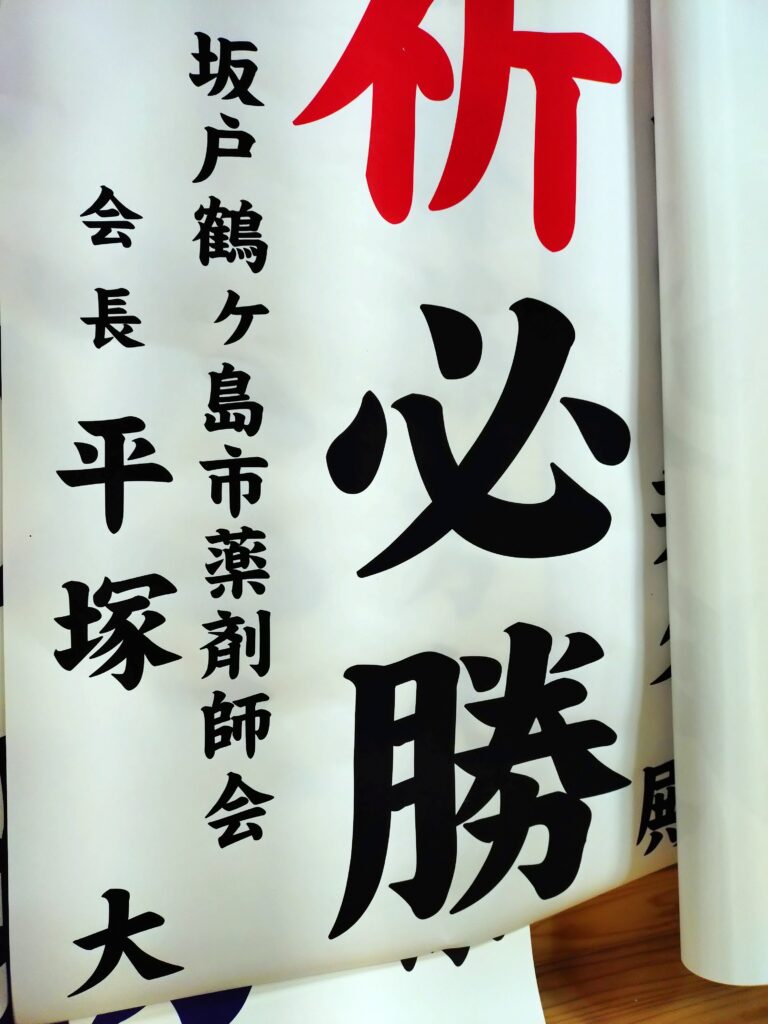 祈必勝
坂戸鶴ヶ島市薬剤師会
会長 平塚 大
殿